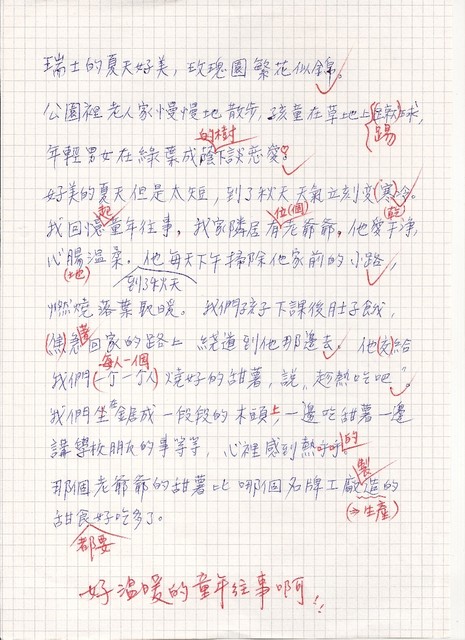 瑞士的夏天好美，玫瑰園繁花似錦。
公園裡老人家慢慢地散步，孩童在草地上球，
踢
的樹
年輕男女在綠葉成蔭下談戀愛。
好美的夏天但是太短，到了秋天天氣立刻變寒冷。
起 位(個)
我回憶童年往事，我家隣居有老爺爺，他愛干淨，
心腸溫柔。他每天下午掃除他家前的小路，
(地) 到了秋天
燃燒落葉取暖。我們孩子下課後肚子餓，
(焦急)回家的路上 繞道到他那邊去。他(交)給
著
每人一個
我們(一个一个人)燒好的甜薯，說，趁熱吃吧"。
我們坐在鋸成一段段的木頭上，一邊吃甜薯一邊
講學校朋友的事等等，心裡感到熱呼呼的
製
那個老爺爺的甜薯比哪個名牌工廠造的
(⇒生產)
甜食好吃多了。
都要
好溫暖的童年往事啊！！